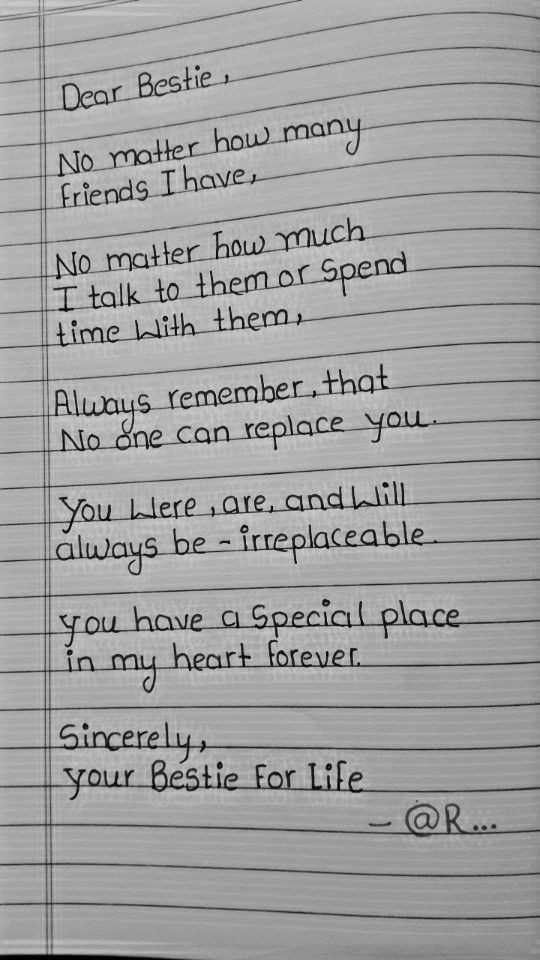 Dear Bestie,
No matter how many
friends I have,
No matter how much
I talk to them or Spend
time With them,
Always remember, that
No one can replace you.
You Were, are, and Will
always be - irreplaceable.
you have a Special place
in my heart forever.
Sincerely,
your Bestie For Life
- @R...